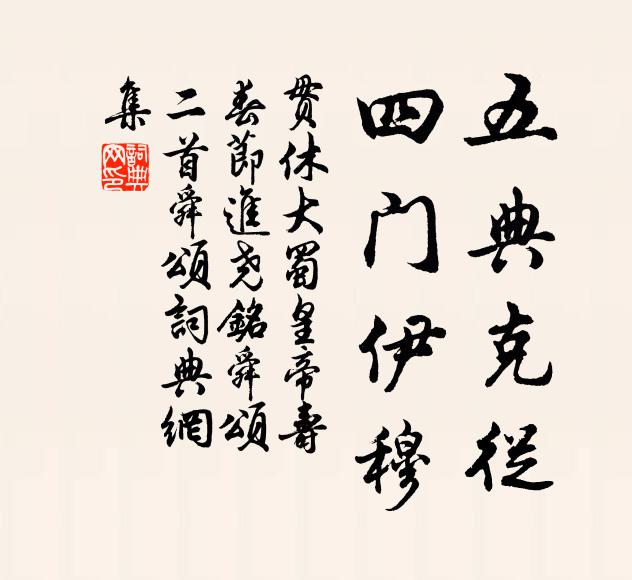 五典克從
四门伊穆
貫休大蜀皇帝壽
春節進尧銘舜頌
二首舜頌詞典網
集
詞典網印